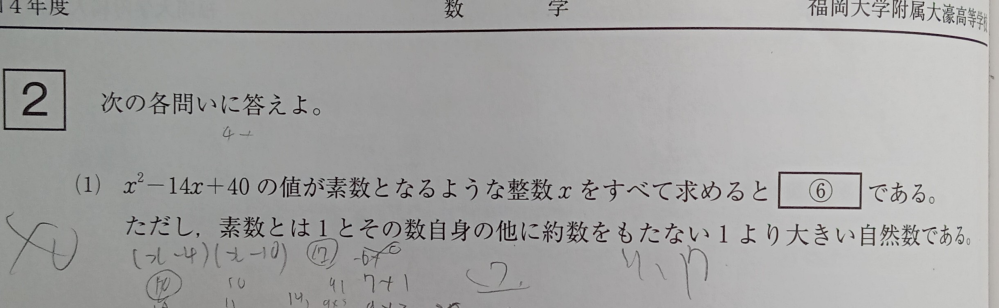 14年度 数 学 福岡大学附属大濠高等学校
2 次の各問いに答えよ。
(1) x²−14x+40 の値が素数となるような整数 x をすべて求めると ⑥ である。
ただし,素数とは1とその数自身の他に約数をもたない1より大きい自然数である。
(x-4)(x-10)